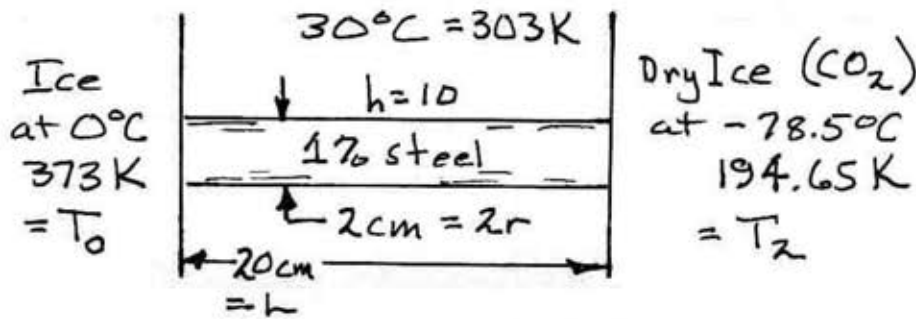 30°C = 303K
Ice
at 0°C
373K
= T₀
h = 10
1% steel
2cm = 2r
20cm
= L
Dry Ice (CO₂)
at -78.5°C
194.65K
= T₂